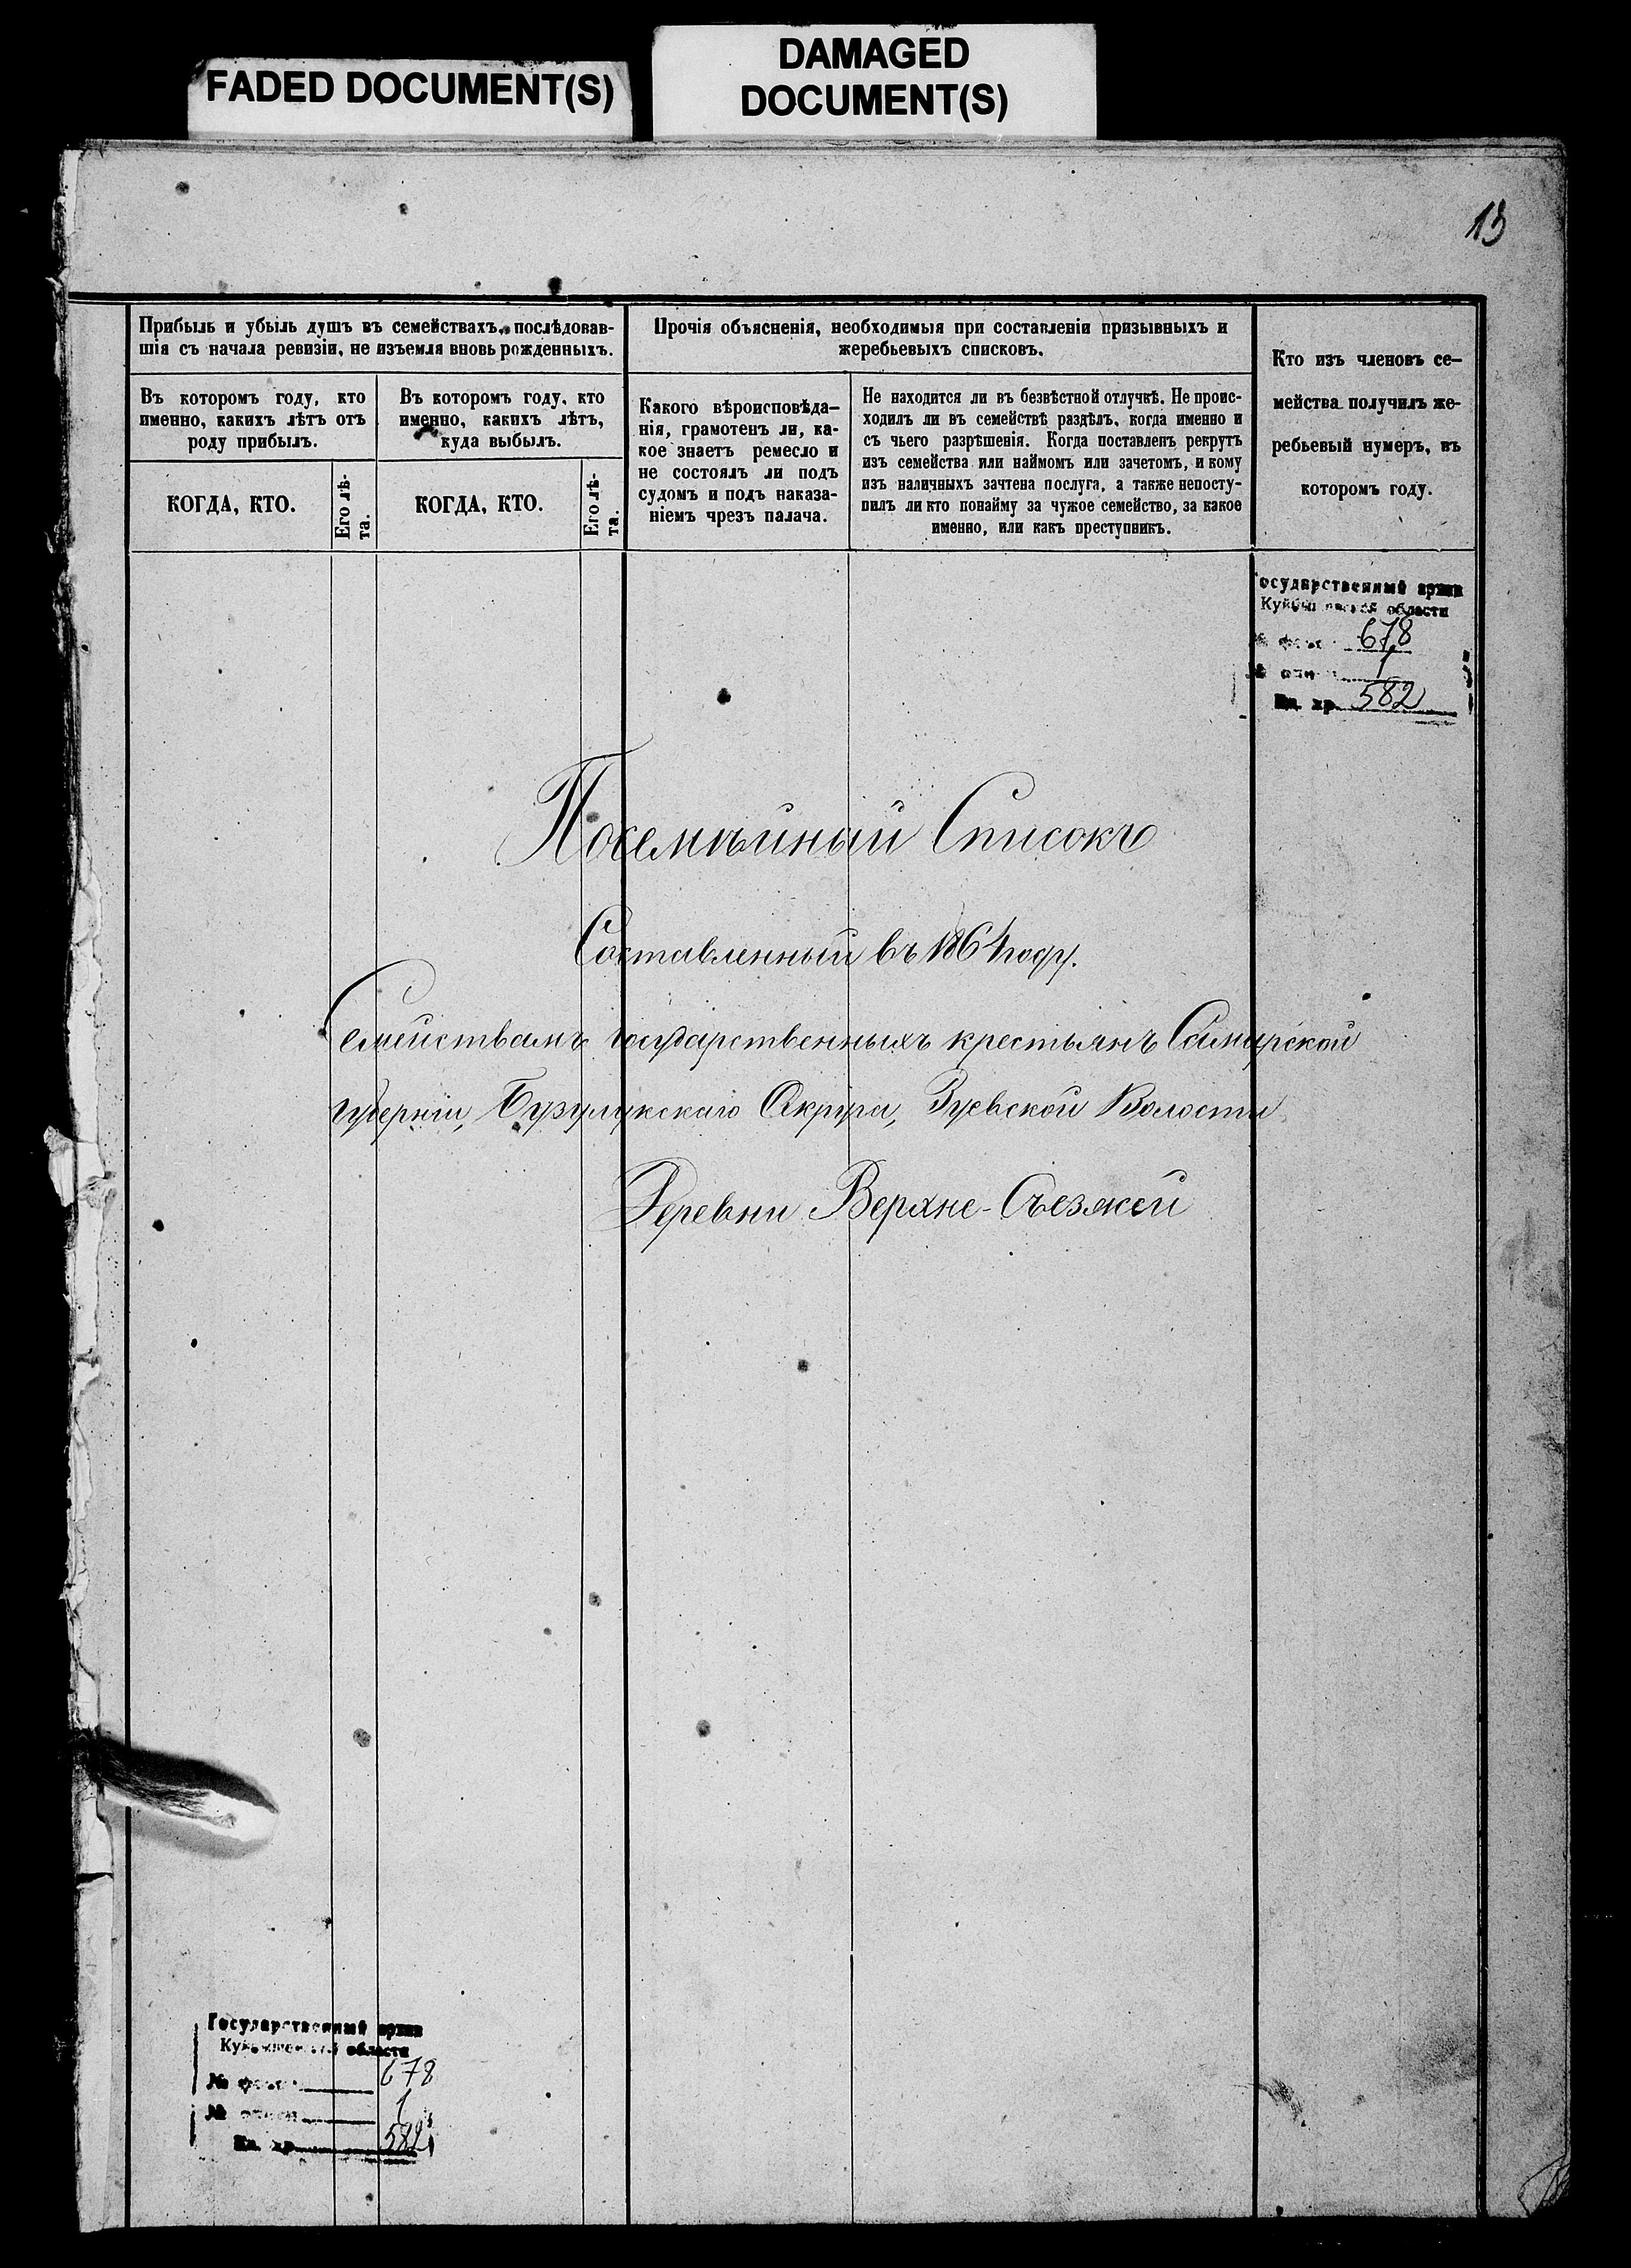 FADED DOCUMENT(S)
DAMAGED
DOCUMENT(S)
13
Прибыль и убыль душъ въ семействахъ, послѣдовав-
шія съ начала ревизіи, не изъемля вновь рожденныхъ.
Въ которомъ году, кто
именно, какихъ лѣтъ отъ
роду прибылъ.
КОГДА, КТО.
Его лѣ-
та.
Въ которомъ году, кто
именно, какихъ лѣтъ,
куда выбылъ.
КОГДА, КТО.
Его лѣ-
та.
Прочія объясненія, необходимыя при составленіи призывныхъ и
жеребьевыхъ списковъ.
Какого вѣроисповѣда-
нія, грамотенъ ли, ка-
кое знаетъ ремесло и
не состоялъ ли подъ
судомъ и подъ наказа-
ніемъ чрезъ палача.
Не находится ли въ безвѣстной отлучкѣ. Не проис-
ходилъ ли въ семействѣ раздѣлъ, когда именно и
съ чьего разрѣшенія. Когда поставленъ рекрутъ
изъ семейства или наймомъ или зачетомъ, и кому
изъ наличныхъ зачтена послуга, а также непосту-
пилъ ли кто понайму за чужое семейство, за какое
именно, или какъ преступникъ.
Кто изъ членовъ се-
мейства получилъ же-
ребьевый нумеръ, въ
которомъ году.
Государственный архив
Куйбышевской области
№ фонда 678
№ описи 1
Ед. хр. 582
Посемѣйный Списокъ
Составленный въ 1864 году.
Семействамъ государственныхъ крестьянъ Самарской
губерніи, Бузулукскаго Округа, Зуевской Волости
Деревни Верхне-Съезжей
Государственный архив
Куйбышевской области
№ фонда 678
№ описи 1
Ед. хр. 582